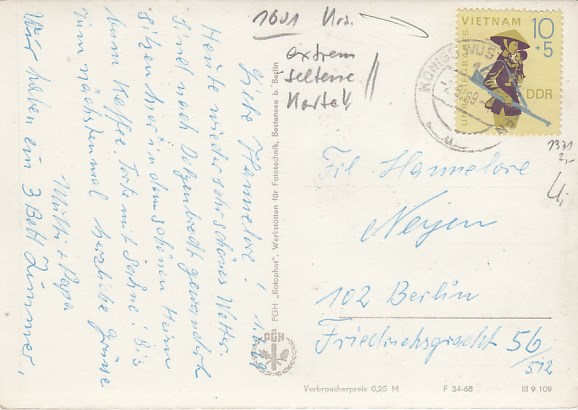 1601 Krs.
extrem
seltene
Karte!!
Liebe Hannelore! 1.7.69
Heute wieder sehr schönes Wetter.
Sind nach Dolgenbrodt gewandert
sitzen hier in dem schönen Heim
beim Kaffee, Torte mit Sahne! Bis
zum nächstenmal herzliche Grüsse
Mutti + Papa
Wir haben ein 3 Bett Zimmer,
PGH „Rotophot", Werkstätten für Fototechnik, Bestensee b. Berlin
PGH
UNBESIEGBARES
VIETNAM
10
+5
DDR
KÖNIGS WUST
1371
2,-
4,-
Frl Hannelore
Neyen
102 Berlin
Friedrichsgracht 56/
512
Verbraucherpreis 0,25 M
F 34-68
III 9 109